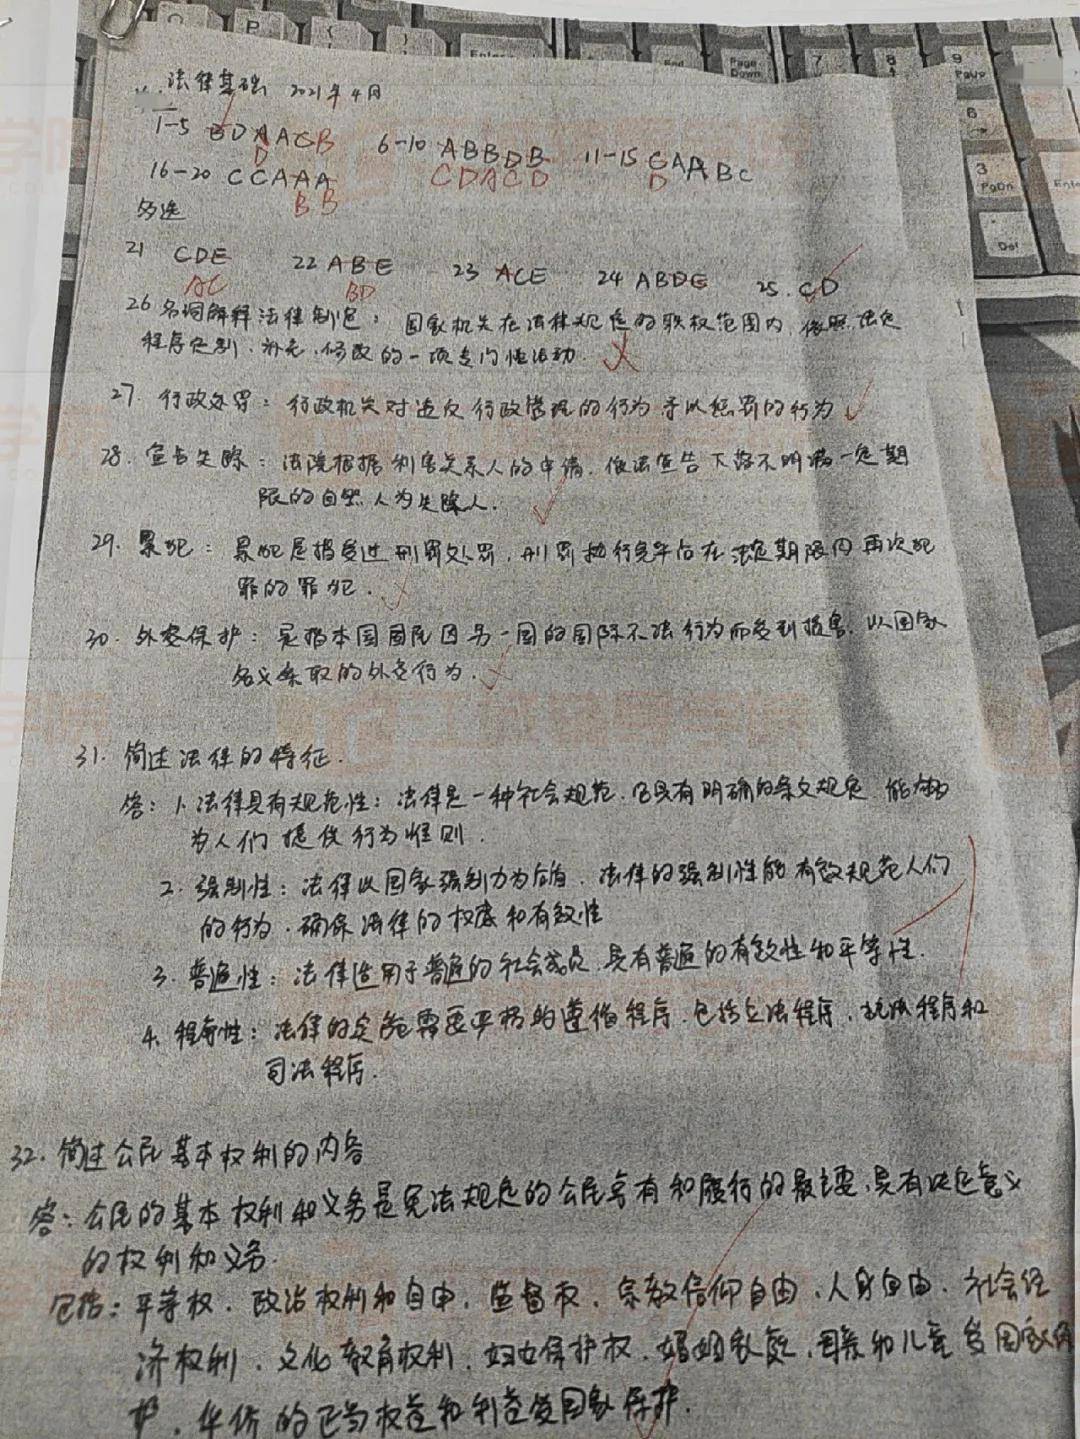 法律基础 2021年4月
1-5 BDAACB 6-10 ABBDB 11-15 CAABC
D CDACD D
16-20 CCAAA
B B
多选
21 CDE 22 ABE 23 ACE 24 ABDE 25. CD
AC BD
26 名词解释 法律制定: 国家机关在法律规定的职权范围内,依照法定
程序 补充、修改的一项专门性活动.
27. 行政处罚: 行政机关对违反行政管理的行为予以惩罚的行为
28. 宣告失踪: 法院根据利害关系人的申请,依法宣告下落不明满一定期
限的自然人为失踪人.
29. 累犯: 累犯是指受过刑罚处罚,刑罚执行完毕后在法定期限内再次犯
罪的罪犯.
30. 外交保护: 是指本国国民因另一国的国际不法行为而受到损害,以国家
名义采取的外交行为.
31. 简述法律的特征.
答: 1. 法律具有规范性: 法律是一种社会规范,它具有明确的条文规定 能够
为人们提供行为准则.
2. 强制性: 法律以国家强制力为后盾,法律的强制性能有效规范人们
的行为,确保法律的权威和有效性
3. 普遍性: 法律适用于普遍的社会成员,具有普遍的有效性和平等性.
4. 程序性: 法律的实施需要严格的遵循程序,包括立法程序、执法程序和
司法程序.
32. 简述公民基本权利的内容
答: 公民的基本权利和义务是宪法规定的公民享有和履行的最主要,具有决定意义
的权利和义务.
包括: 平等权、政治权利和自由、监督权、宗教信仰自由、人身自由、社会经
济权利、文化教育权利、妇女保护权、婚姻家庭、母亲和儿童受国家保
护、华侨的正当权益和利益受国家保护.
P
{
[
}
]
Enter
End
Page
Down
7
8
9
PgUp
6
3
PgDn
Del
Ente